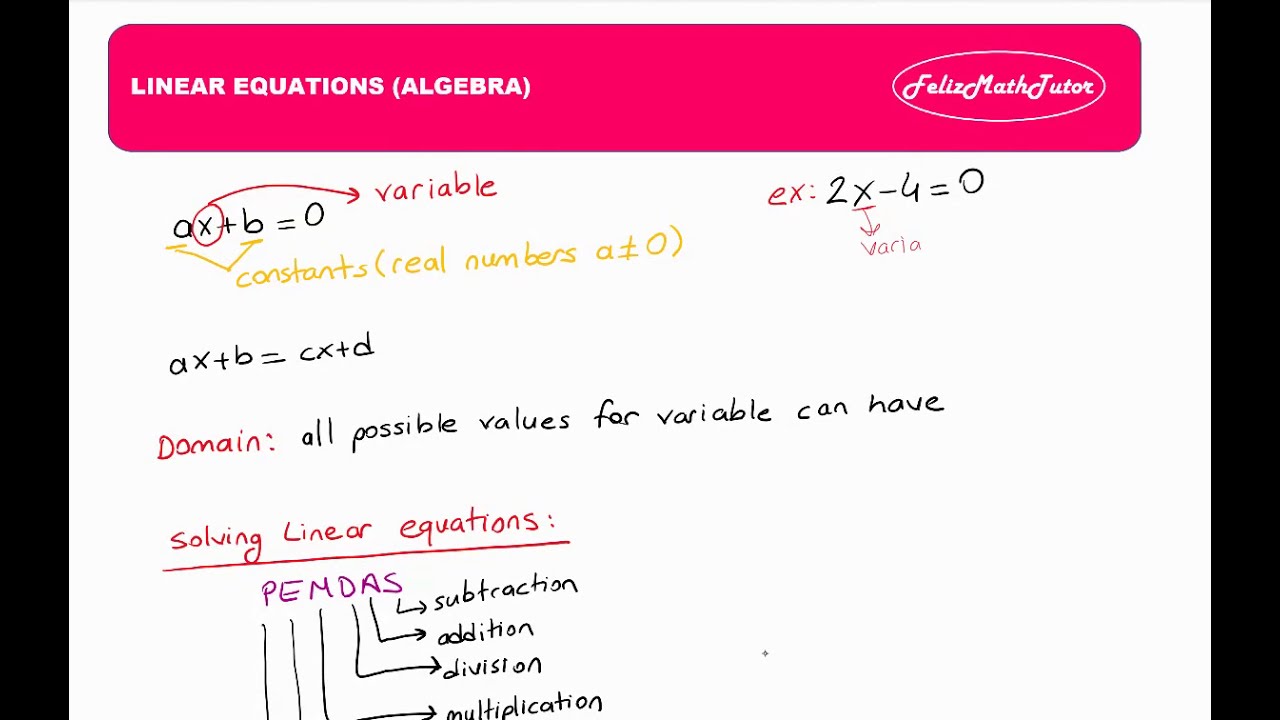 LINEAR EQUATIONS (ALGEBRA)
FelizMathTutor
variable
ax+b=0
constants (real numbers a≠0)
ex: 2x-4=0
varia
ax+b=cx+d
Domain: all possible values for variable can have
Solving Linear equations:
PEMDAS
subtraction
addition
division
multiplication